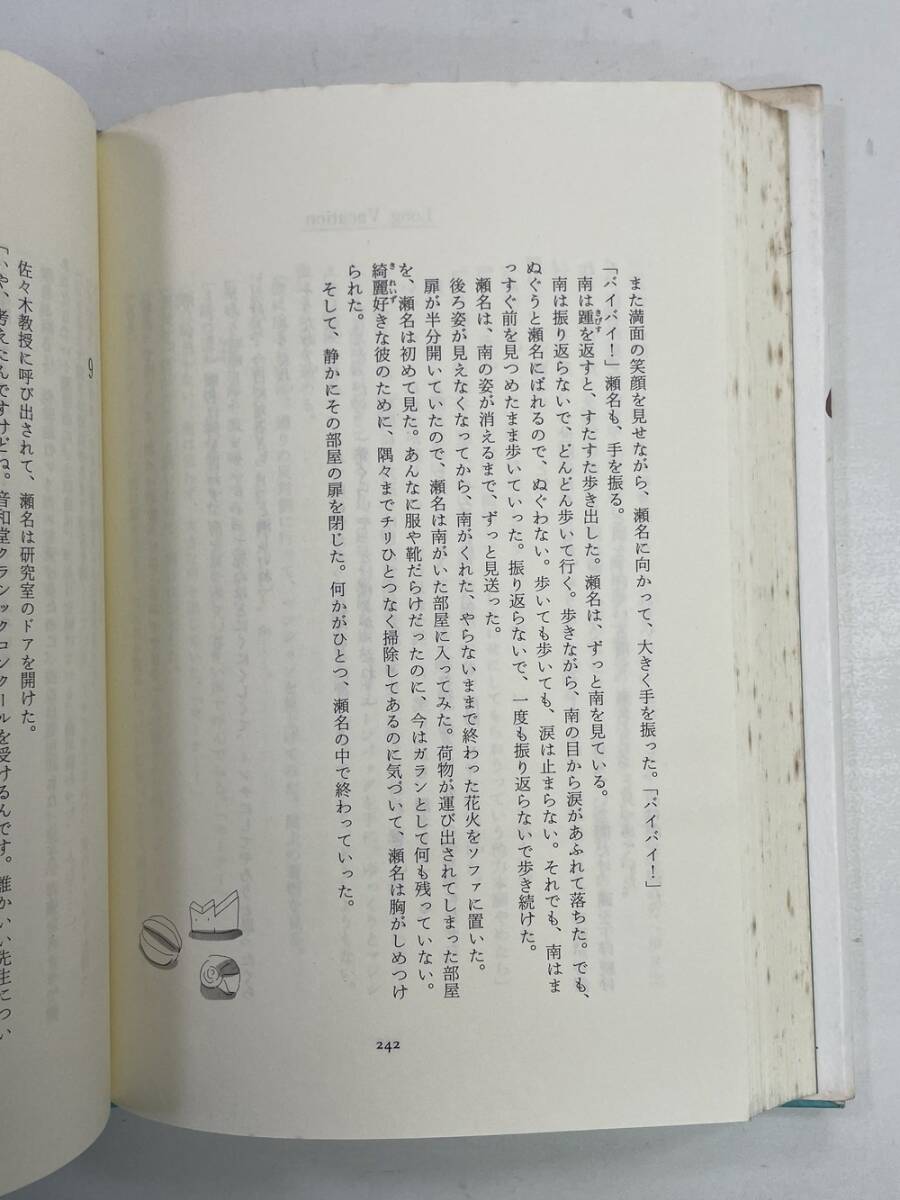 Long Vacation
また満面の笑顔を見せながら、瀬名に向かって、大きく手を振った。「バイバイ！」
「バイバイ！」瀬名も、手を振る。
南は踵を返すと、すたすた歩き出した。瀬名は、ずっと南を見ている。
きびす
南は振り返らないで、どんどん歩いて行く。歩きながら、南の目から涙があふれて落ちた。でも、
ぬぐうと瀬名にばれるので、ぬぐわない。歩いても歩いても、涙は止まらない。それでも、南はま
っすぐ前を見つめたまま歩いていった。振り返らないで、一度も振り返らないで歩き続けた。
瀬名は、南の姿が消えるまで、ずっと見送った。
後ろ姿が見えなくなってから、南がくれた、やらないままで終わった花火をソファに置いた。
扉が半分開いていたので、瀬名は南がいた部屋に入ってみた。荷物が運び出されてしまった部屋
を、瀬名は初めて見た。あんなに服や靴だらけだったのに、今はガランとして何も残っていない。
綺麗好きな彼のために、隅々までチリひとつなく掃除してあるのに気づいて、瀬名は胸がしめつけ
きれいず
られた。
そして、静かにその部屋の扉を閉じた。何かがひとつ、瀬名の中で終わっていった。
242
9
佐々木教授に呼び出されて、瀬名は研究室のドアを開けた。
「いや、考えたんですけどね。音和堂クラシックコンクールを受けるんです。誰かいい先生につい